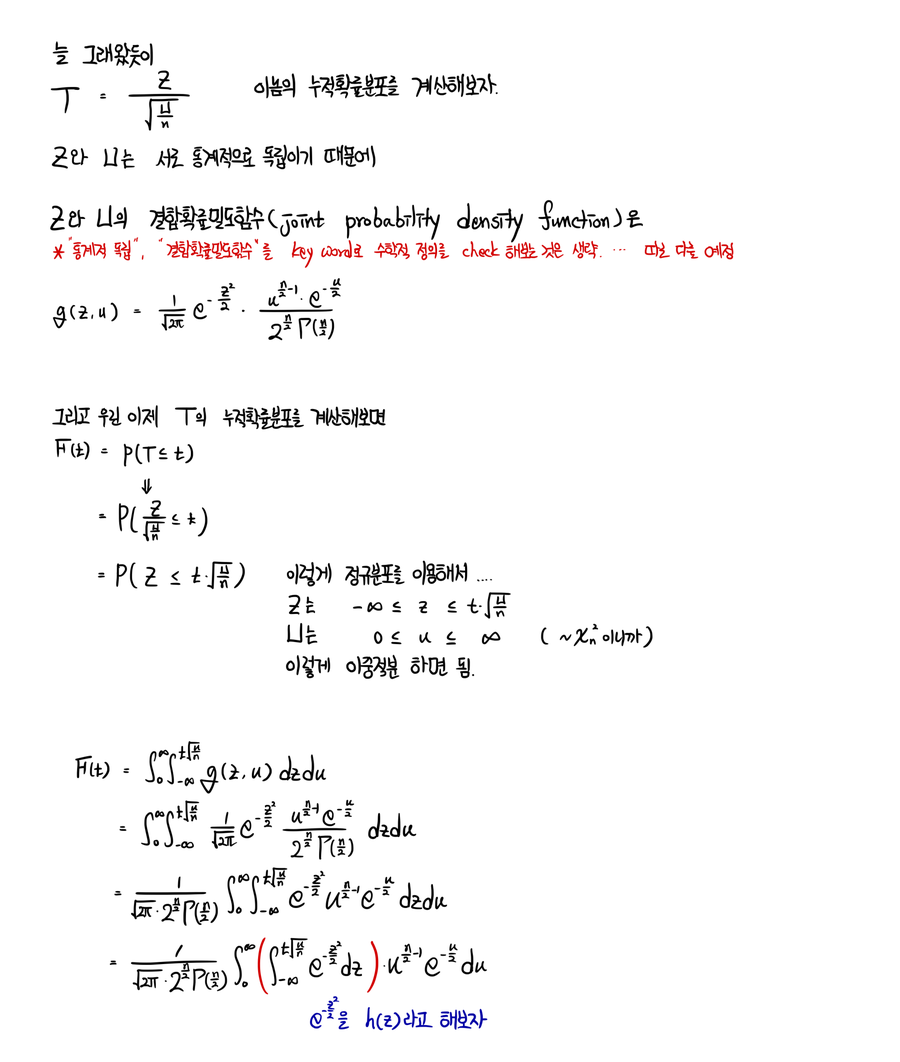 늘 그래왔듯이
T = Z / √(U/n) 이놈의 누적확률분포를 계산해보자.
Z와 U는 서로 통계적으로 독립이기 때문에
Z와 U의 결합확률밀도함수(joint probability density function)은
* "통계적 독립", "결합확률밀도함수"를 key word로 수학적 정의를 check 해보는 것은 생략. ... 따로 다룰 예정
g(z,u) = 1/√(2π) e^(-z²/2) · u^(n/2-1) · e^(-u/2) / (2^(n/2) Γ(n/2))
그리고 우린 이제 T의 누적확률분포를 계산해보면
F(t) = P(T ≤ t)
⇓
= P(Z/√(U/n) ≤ t)
= P( Z ≤ t·√(U/n) ) 이렇게 정규분포를 이용해서 ....
Z는 -∞ ≤ z ≤ t·√(U/n)
U는 0 ≤ u ≤ ∞ ( ~χ²ₙ 이니까)
이렇게 이중적분 하면 됨.
F(t) = ∫₀^∞ ∫_{-∞}^{t√(u/n)} g(z,u) dzdu
= ∫₀^∞ ∫_{-∞}^{t√(u/n)} 1/√(2π) e^(-z²/2) u^(n/2-1) e^(-u/2) / (2^(n/2) Γ(n/2)) dzdu
= 1/(√(2π)·2^(n/2) Γ(n/2)) ∫₀^∞ ∫_{-∞}^{t√(u/n)} e^(-z²/2) u^(n/2-1) e^(-u/2) dzdu
= 1/(√(2π)·2^(n/2) Γ(n/2)) ∫₀^∞ ( ∫_{-∞}^{t√(u/n)} e^(-z²/2) dz ) · u^(n/2-1) e^(-u/2) du
e^(-z²/2)을 h(z)라고 해보자